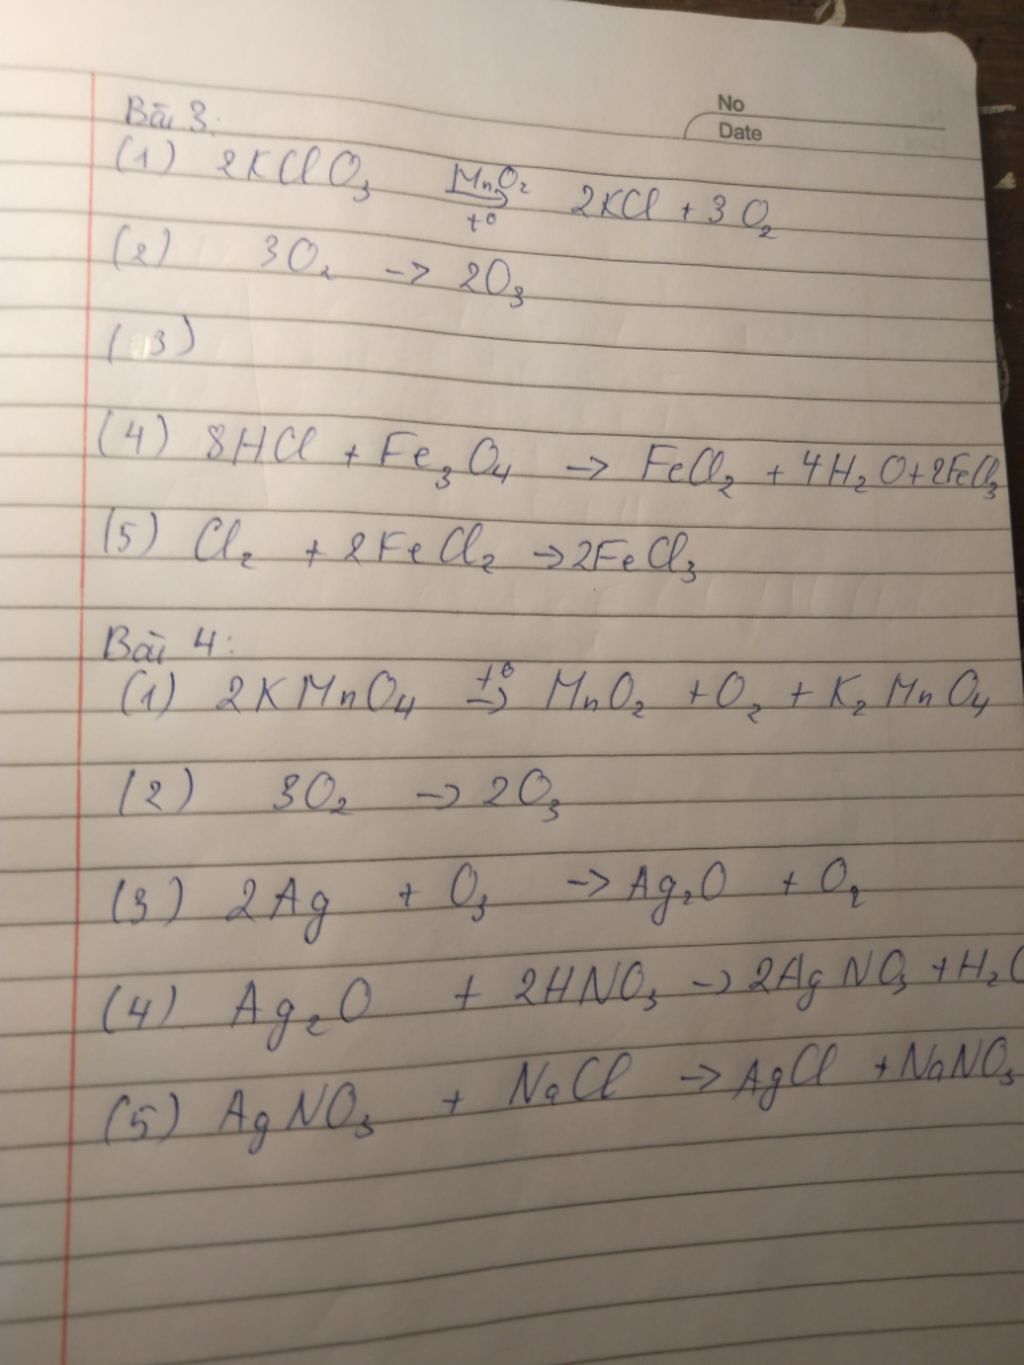 No
Date
Bài 3:
(1) 2KClO₃ MnO₂ → t° 2KCl + 3O₂
(2) 3O₂ → 2O₃
(3)
(4) 8HCl + Fe₃O₄ → FeCl₂ + 4H₂O + 2FeCl₃
(5) Cl₂ + 2FeCl₂ → 2FeCl₃
Bài 4:
(1) 2KMnO₄ t° → MnO₂ + O₂ + K₂MnO₄
(2) 3O₂ → 2O₃
(3) 2Ag + O₃ → Ag₂O + O₂
(4) Ag₂O + 2HNO₃ → 2AgNO₃ + H₂O
(5) AgNO₃ + NaCl → AgCl + NaNO₃